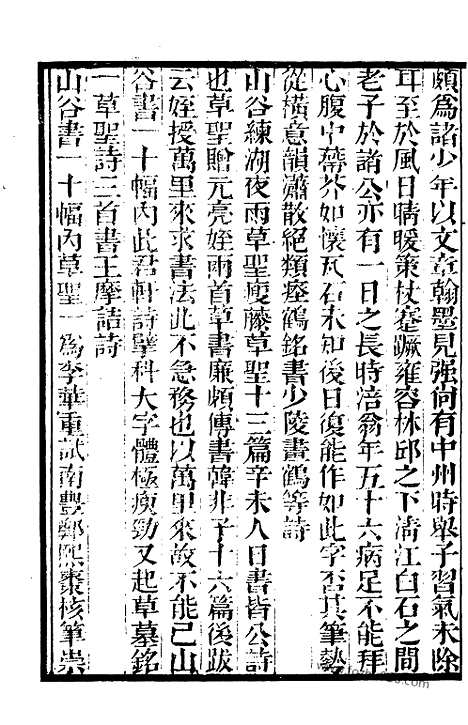 頗爲諸少年以文章翰墨見强尙有中州時舉子習氣未除
耳至於風日晴暖策杖蹇蹶雍容林邱之下淸江白石之間
老子於諸公亦有一日之長時涪翁年五十六病足不能拜
心腹中蔕芥如懷瓦石未知後日復能作如此字否其筆勢
從橫意韻瀟散絕類瘞鶴銘書少陵畫鶴等詩
山谷練湖夜雨草聖廋藤草聖十三篇辛未人日書皆公詩
也草聖贈元亮姪兩首草書廉頗傳書韓非子十六篇後跋
云姪授萬里來求書法此不急務也以萬里來故不能已山
谷書一十幅內此君軒詩擘科大字體極瘦勁又起草墓銘
一草聖詩三首書王摩詰詩
山谷書一十幅內草聖一爲李華重試南豐鄭熙棗核筆崇